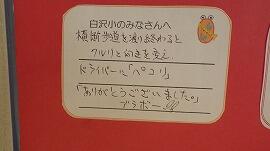 白沢小のみなさんへ
横断歩道を渡り終わると
クルリと向きを変え
ドライバーに「ペコリ」
「ありがとうございました。」
ブラボー!!!